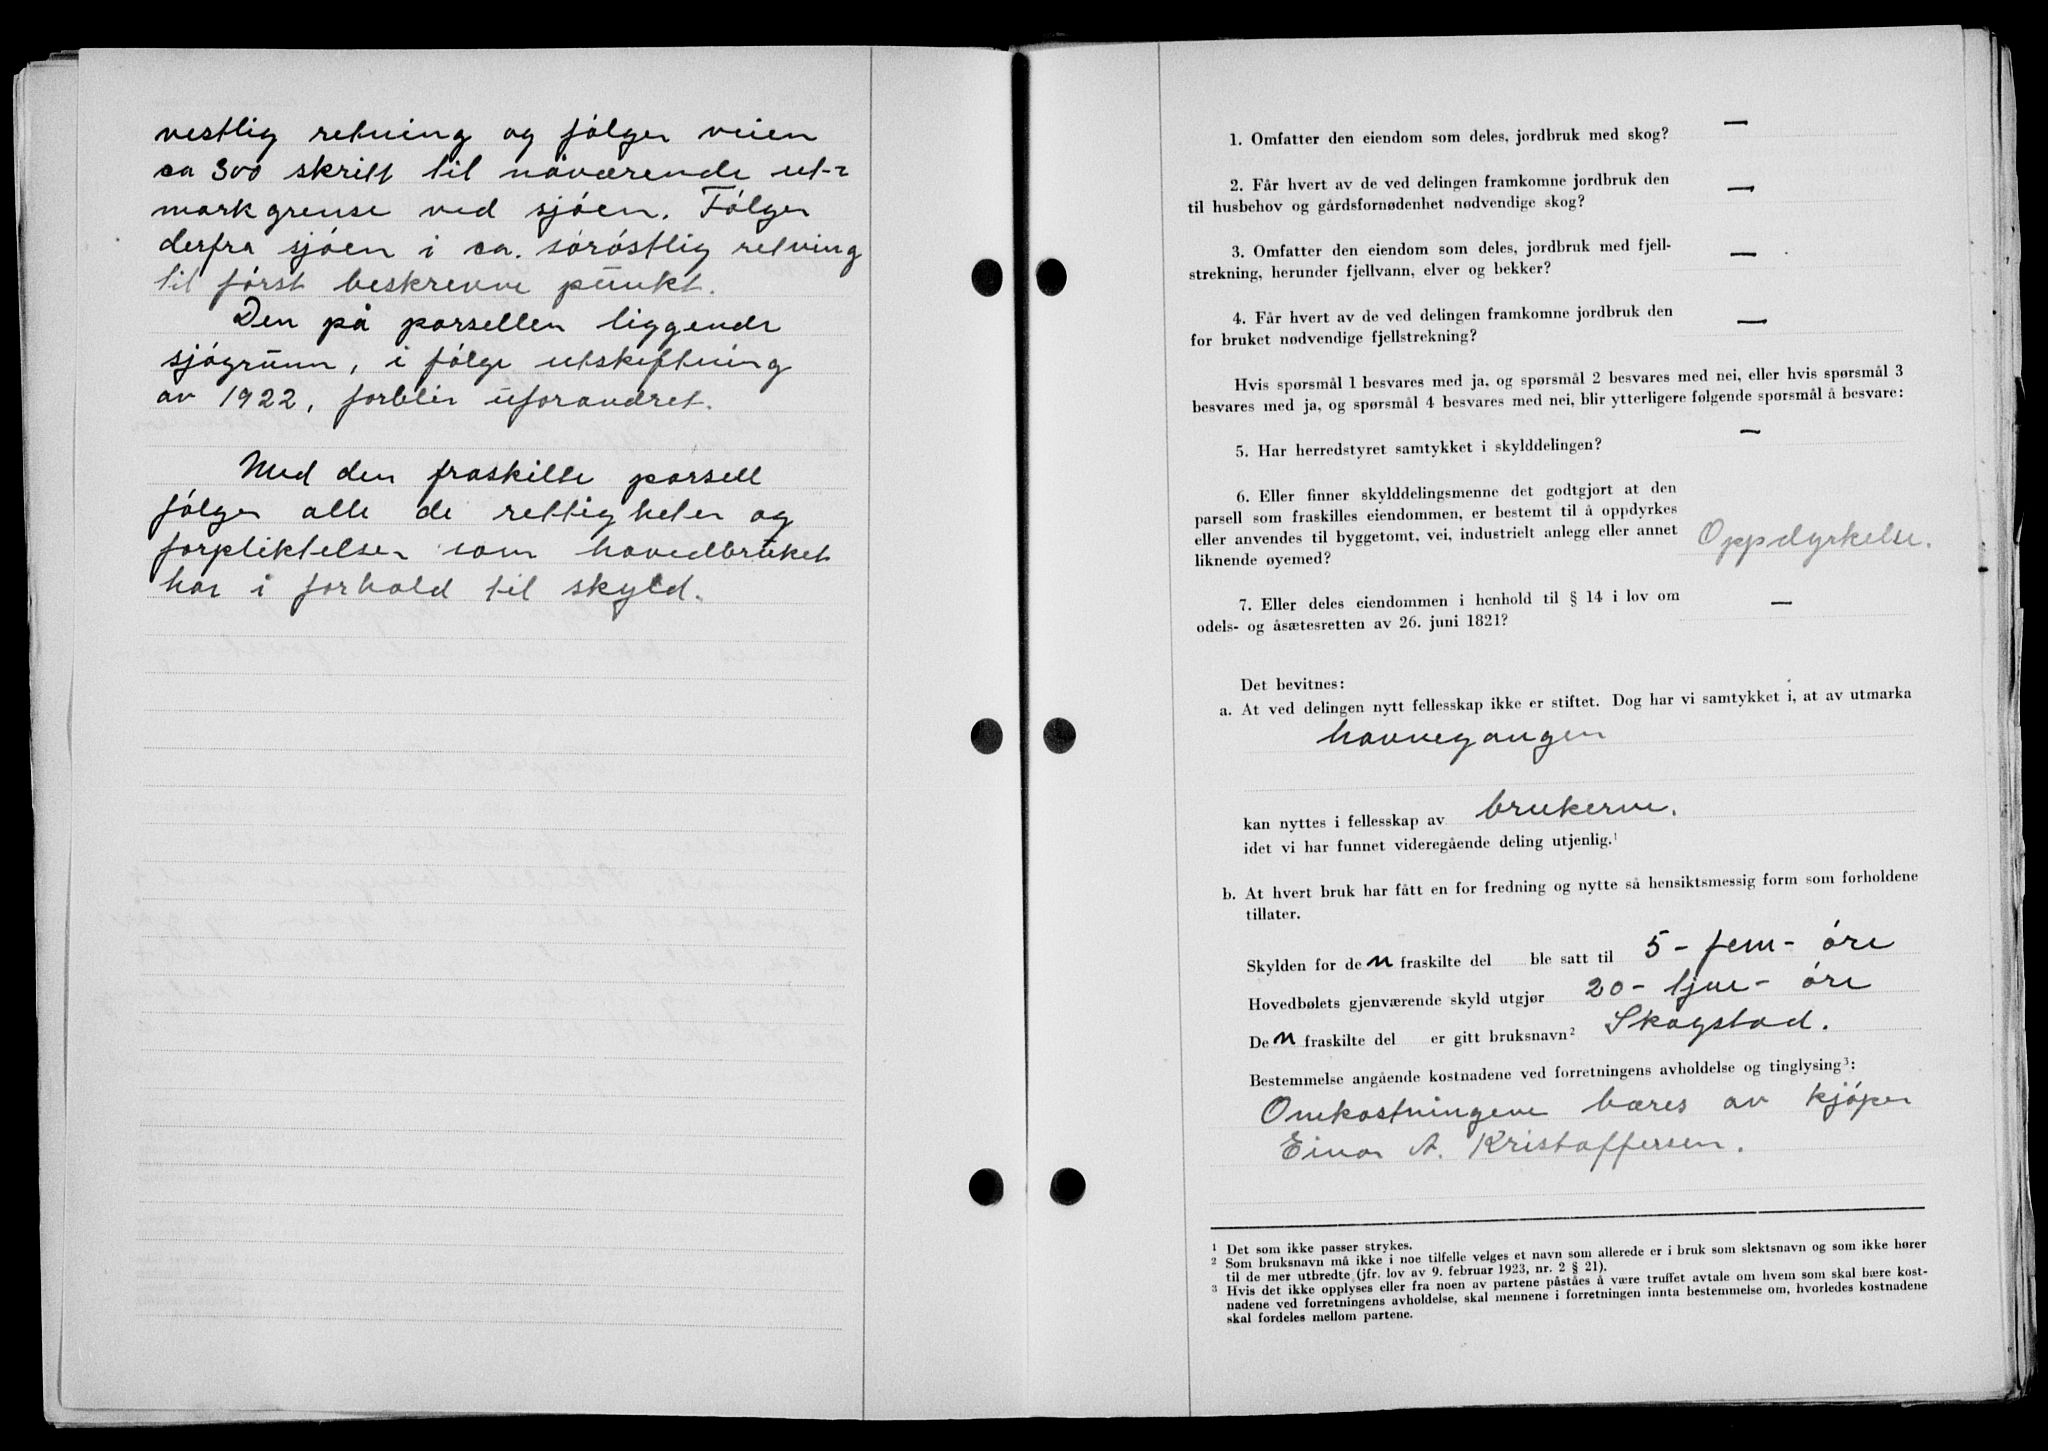 vestlig retning og følger veien
ca 300 skritt til nåværende ut-
markgrense ved sjøen. Følger
derfra sjøen i ca. sørøstlig retning
til først beskrevne punkt.
Den på parsellen liggende
sjøgrunn, i følge utskiftning
av 1922, forblir uforandret.
Med den fraskilte parsell
følger alle de rettigheter og
forpliktelser som hovedbruket
har i forhold til skyld.
1. Omfatter den eiendom som deles, jordbruk med skog? —
2. Får hvert av de ved delingen framkomne jordbruk den
til husbehov og gårdsfornødenhet nødvendige skog? —
3. Omfatter den eiendom som deles, jordbruk med fjell-
strekning, herunder fjellvann, elver og bekker? —
4. Får hvert av de ved delingen framkomne jordbruk den
for bruket nødvendige fjellstrekning? —
Hvis spørsmål 1 besvares med ja, og spørsmål 2 besvares med nei, eller hvis spørsmål 3
besvares med ja, og spørsmål 4 besvares med nei, blir ytterligere følgende spørsmål å besvare:
5. Har herredstyret samtykket i skylddelingen? —
6. Eller finner skylddelingsmenne det godtgjort at den
parsell som fraskilles eiendommen, er bestemt til å oppdyrkes
eller anvendes til byggetomt, vei, industrielt anlegg eller annet
liknende øyemed? Oppdyrkelse.
7. Eller deles eiendommen i henhold til § 14 i lov om
odels- og åsætesretten av 26. juni 1821? —
Det bevitnes:
a. At ved delingen nytt fellesskap ikke er stiftet. Dog har vi samtykket i, at av utmarka
havnegangen
kan nyttes i fellesskap av brukerne.
idet vi har funnet videregående deling utjenlig.¹
b. At hvert bruk har fått en for fredning og nytte så hensiktsmessig form som forholdene
tillater.
Skylden for de n fraskilte del ble satt til 5 - fem - øre
Hovedbølets gjenværende skyld utgjør 20 - tjue - øre
De n fraskilte del er gitt bruksnavn² Skogstad.
Bestemmelse angående kostnadene ved forretningens avholdelse og tinglysing³:
Omkostningene bæres av kjøper
Einar A. Kristoffersen.
¹ Det som ikke passer strykes.
² Som bruksnavn må ikke i noe tilfelle velges et navn som allerede er i bruk som slektsnavn og som ikke hører
til de mer utbredte (jfr. lov av 9. februar 1923, nr. 2 § 21).
³ Hvis det ikke opplyses eller fra noen av partene påståes å være truffet avtale om hvem som skal bære kost-
nadene ved forretningens avholdelse, skal mennene i forretningen innta bestemmelse om, hvorledes kostnadene
skal fordeles mellom partene.